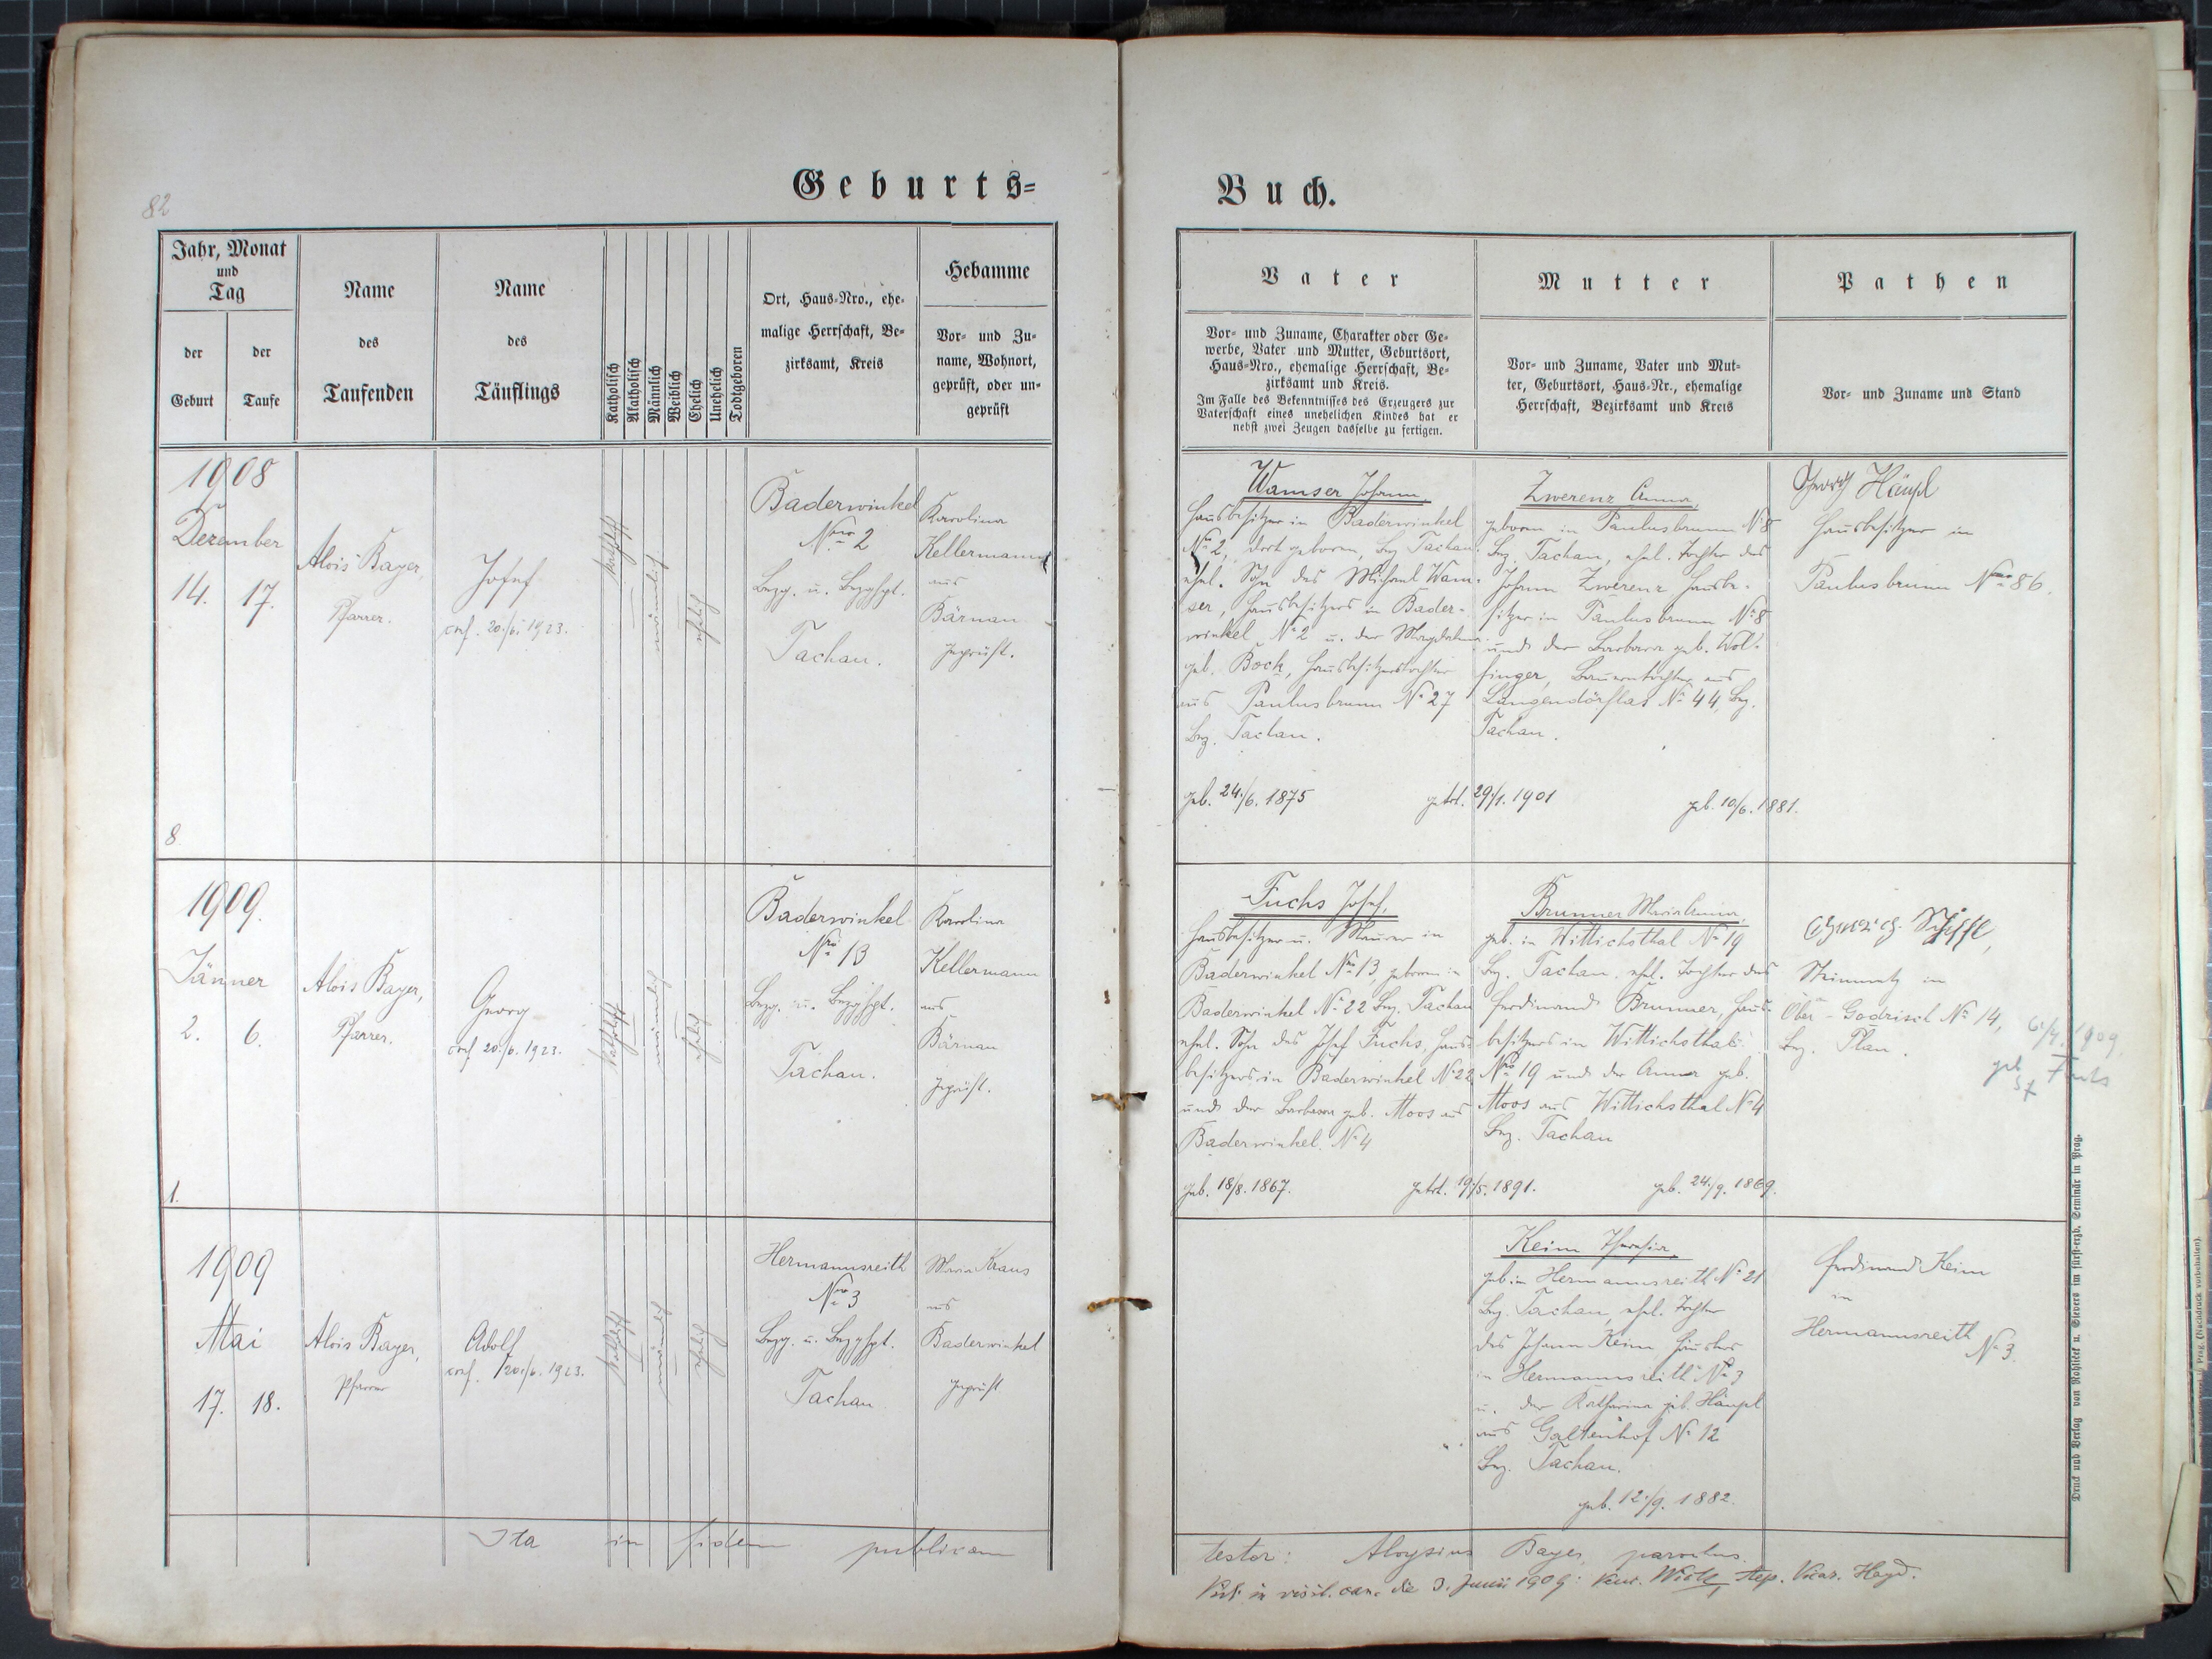 82
Geburts-
Jahr, Monat
und
Tag
der
Geburt
der
Taufe
Name
des
Taufenden
Name
des
Täuflings
Katholisch
Akatholisch
Männlich
Weiblich
Ehelich
Unehelich
Todtgeboren
Ort, Haus-Nro., ehe-
malige Herrschaft, Be-
zirksamt, Kreis
Hebamme
Vor- und Zu-
name, Wohnort,
geprüft, oder un-
geprüft
1908
Dezember
14. 17.
8
Alois Bayer,
Pfarrer.
Josef
conf. 20./6. 1923.
katholisch
männlich
ehelich
Baderwinkel
Nro 2
Bezg. u. Bezghpt.
Tachau.
Karolina
Kellermann
aus
Bärnau
geprüft.
1909.
Jänner
2. 6.
1.
Alois Bayer,
Pfarrer.
Georg
conf 20./6. 1923.
katholisch
männlich
ehelich
Baderwinkel
Nro 13
Bezg. u. Bezghpt.
Tachau.
Karolina
Kellermann
aus
Bärnau
geprüft.
1909
Mai
17. 18.
Alois Bayer,
Pfarrer
Adolf
conf. 20./6. 1923.
katholisch
männlich
Hermannsreith
Nro 3
Bezg. u. Bezghpt.
Tachau
Maria Kraus
aus
Baderwinkel
geprüft
Ita in fidem publicam
Buch.
Vater
Vor- und Zuname, Charakter oder Ge-
werbe, Vater und Mutter, Geburtsort,
Haus-Nro., ehemalige Herrschaft, Be-
zirksamt und Kreis.
Im Falle des Bekenntnisses des Erzeugers zur
Vaterschaft eines unehelichen Kindes hat er
nebst zwei Zeugen dasselbe zu fertigen.
Mutter
Vor- und Zuname, Vater und Mut-
ter, Geburtsort, Haus-Nr., ehemalige
Herrschaft, Bezirksamt und Kreis
Pathen
Vor- und Zuname und Stand
Wamser Johann,
Hausbesitzer in Baderwinkel
No 2, dort geboren, Bez Tachau.
ehel. Sohn des Michael Wam-
ser, Hausbesitzers in Bader-
winkel No 2 u. der Magdalena
geb. Bock, Hausbesitzerstochter
aus Paulusbrunn No 27
Bez. Tachau.
geb. 24./6. 1875
getrt. 29/1. 1901
Zwerenz Anna,
geboren in Paulusbrunn No 8
Bez. Tachau, ehel. Tochter des
Johann Zwerenz Hausbe-
sitzer in Paulusbrunn No 8
und der Barbara geb. Wol-
finger, Bauerntochter aus
Langendörflas No 44, Bez.
Tachau.
geb. 10/6. 1881.
Georg Häupl
Hausbesitzer in
Paulusbrunn Nro 86.
Fuchs Josef,
Hausbesitzer u. Maurer in
Baderwinkel No 13, geboren in
Baderwinkel No 22 Bez. Tachau
ehel. Sohn des Josef Fuchs, Haus-
besitzers in Baderwinkel No 22
und der Barbara geb. Moos aus
Baderwinkel No 4
geb. 18/8. 1867.
getrt. 19/5. 1891.
Brunner Maria Anna,
geb. in Wittichsthal No 19
Bez. Tachau, ehel. Tochter des
Ferdinand Brunner, Haus-
besitzers in Wittichsthal
No 19 und der Anna geb.
Moos aus Wittichsthal No 4
Bez. Tachau
geb. 24./9. 1869.
Steinmetz in
Ober-Godrisch No 14,
Bez. Plan.
6./4. 1909
Keim Theresia,
geb in Hermannsreith No 21
Bez. Tachau, ehel. Tochter
des Johann Keim Häuslers
in Hermannsreith No 3
u. der Katharina geb. Häupl
aus Galtenhof No 12
Bez. Tachau.
geb. 12./9. 1882.
Ferdinand Keim
in
Hermannsreith
No 3.
testor: Aloysius Bayer, parochus.
in visit. can. die 3. Junii 1909: Vicar. Hayd.
Druck und Verlag von Rohliček u. Sievers im fürst-erzb. Seminär in Prag.